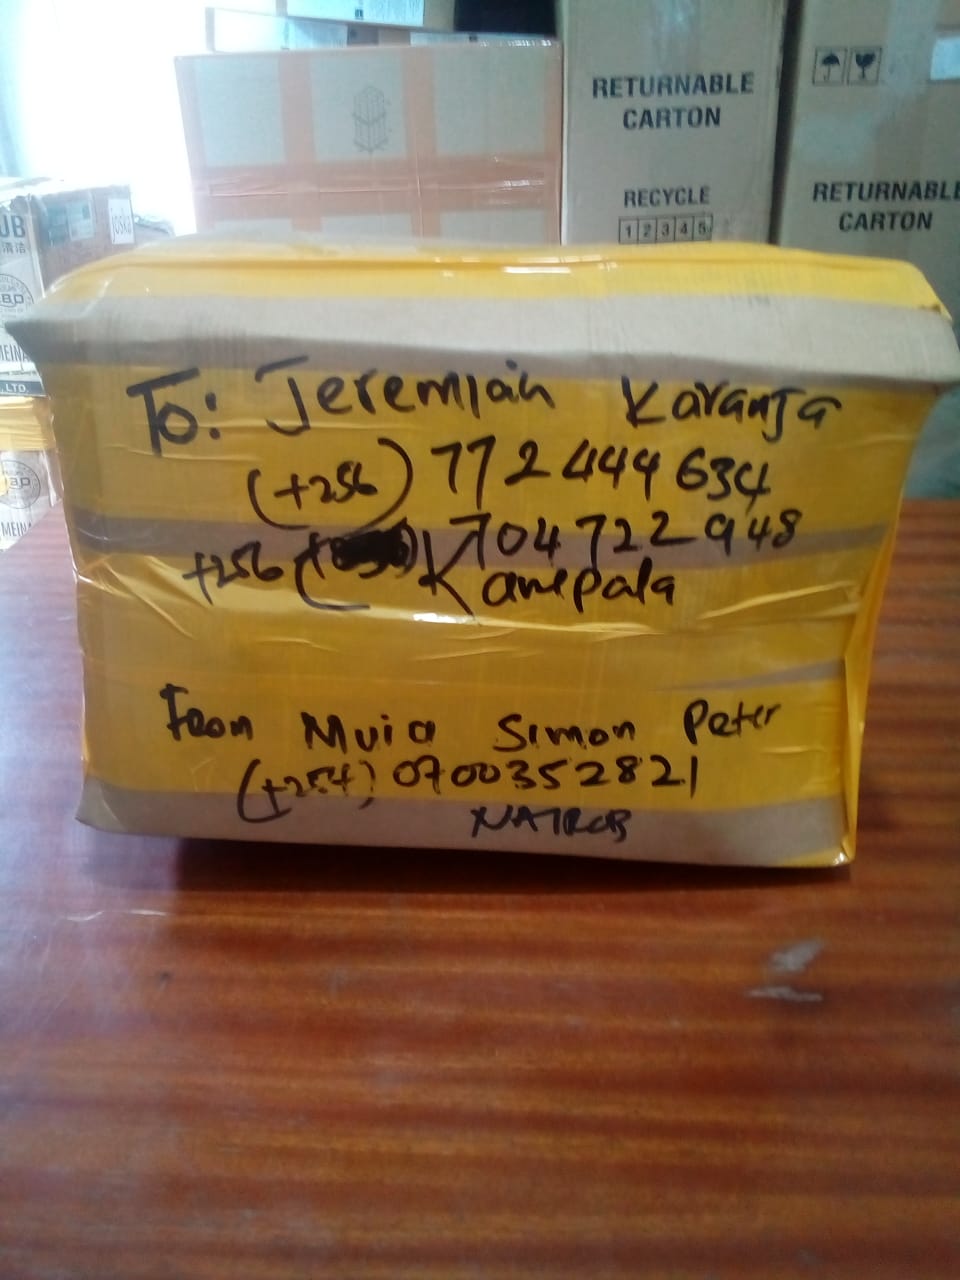 RETURNABLE
CARTON
RECYCLE
1 2 3 4 5
RETURNABLE
CARTON
UB
清洁
joska
MEINA
LTD
MEINA
To: Jeremiah Karanja
(+256) 772 444 634
+256 704 722 948
Kampala
From Muia Simon Peter
(+254) 0700352821
NAIROB